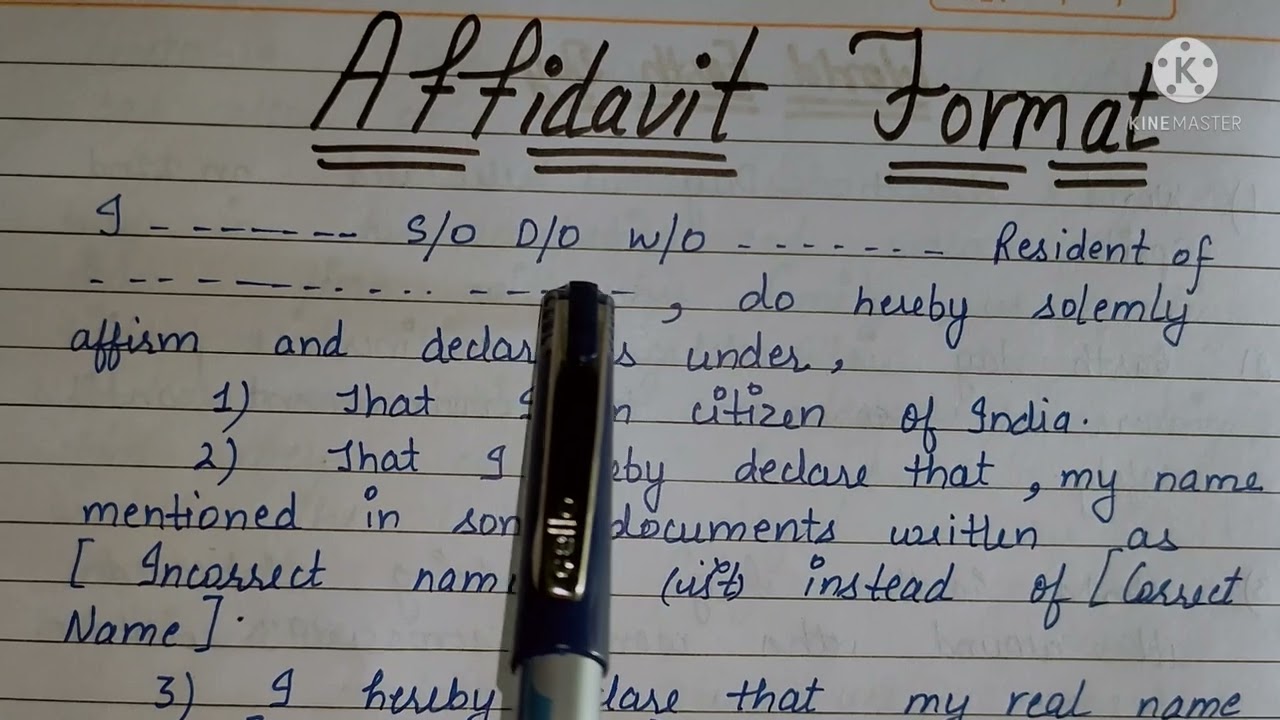 Affidavit Format
KINEMASTER
I - - - - - - - S/O D/O W/O - - - - - - - Resident of
- - - - - - - - - - - - - - , do hereby solemly
affirm and under,
1) That citizen of India.
2) That I declare that, my name
mentioned in documents written as
[ Incorrect instead of [Correct
Name].
3) I hereby that my real name